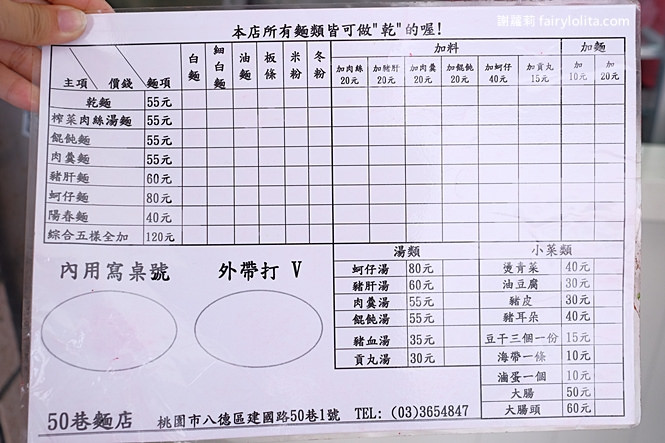 謝蘿莉 fairylolita.com
本店所有麵類皆可做"乾"的喔!
主項 價錢 麵項 白麵 細白麵 油麵 板條 米粉 冬粉 加料 加麵
加肉絲20元 加豬肝20元 加肉羹20元 加餛飩20元 加蚵仔40元 加貢丸15元 加10元 加20元
乾麵 55元
榨菜肉絲湯麵 55元
餛飩麵 55元
肉羹麵 55元
豬肝麵 60元
蚵仔麵 80元
陽春麵 40元
綜合五樣全加 120元
內用寫桌號 外帶打 V
湯類
蚵仔湯 80元
豬肝湯 60元
肉羹湯 55元
餛飩湯 55元
豬血湯 35元
貢丸湯 30元
小菜類
燙青菜 40元
油豆腐 30元
豬皮 30元
豬耳朵 40元
豆干三個一份 15元
海帶一條 10元
滷蛋一個 10元
大腸 50元
大腸頭 60元
50巷麵店 桃園市八德區建國路50巷1號 TEL: (03)3654847